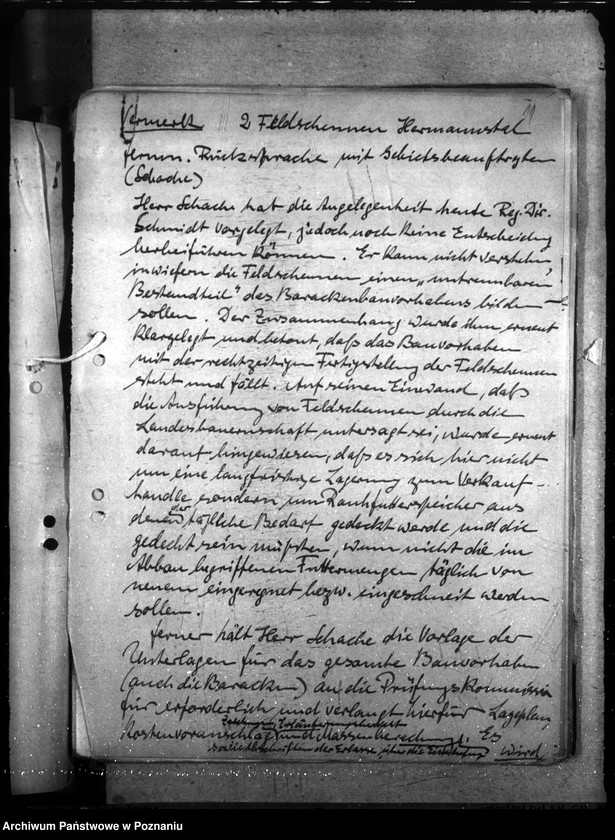 Vermerk 2 Feldscheunen Hermannstal
fernm. Rücksprache mit Gebietsbeauftragten
(Schache)
Herr Schache hat die Angelegenheit heute Reg. Dir.
Schmidt vorgelegt, jedoch noch keine Entscheidung
herbeiführen können. Er kann nicht verstehen
inwiefern die Feldscheunen einen „untrennbaren
Bestandteil" des Barackenbauvorhabens bilden
sollen. Der Zusammenhang wurde ihm erneut
klargelegt und betont, daß das Bauvorhaben
mit der rechtzeitigen Fertigstellung der Feldscheunen
steht und fällt. Auf seinen Einwand, daß
die Ausführung von Feldscheunen durch die
Landesbauernschaft untersagt sei, wurde erneut
darauf hingewiesen, daß es sich hier nicht
um eine langfristige Lagerung zum Verkauf
handle sondern um Rauhfutterspeicher aus
denen der tägliche Bedarf gedeckt werde und die
gedeckt sein müßten, wenn nicht die im
Abbau begriffenen Futtermengen täglich von
neuem eingeregnet bezw. eingeschneit werden
sollen.
Ferner hält Herr Schache die Vorlage der
Unterlagen für das gesamte Bauvorhaben
(auch die Baracken) an die Prüfungskommission
für erforderlich und verlangt hierfür Lageplan,
Zeichnung, Erläuterungsbericht
Kostenvoranschlag und Massenberechnung. Es
sowie Abschriften der Erlasse über die wird
Archiwum Państwowe w Poznaniu